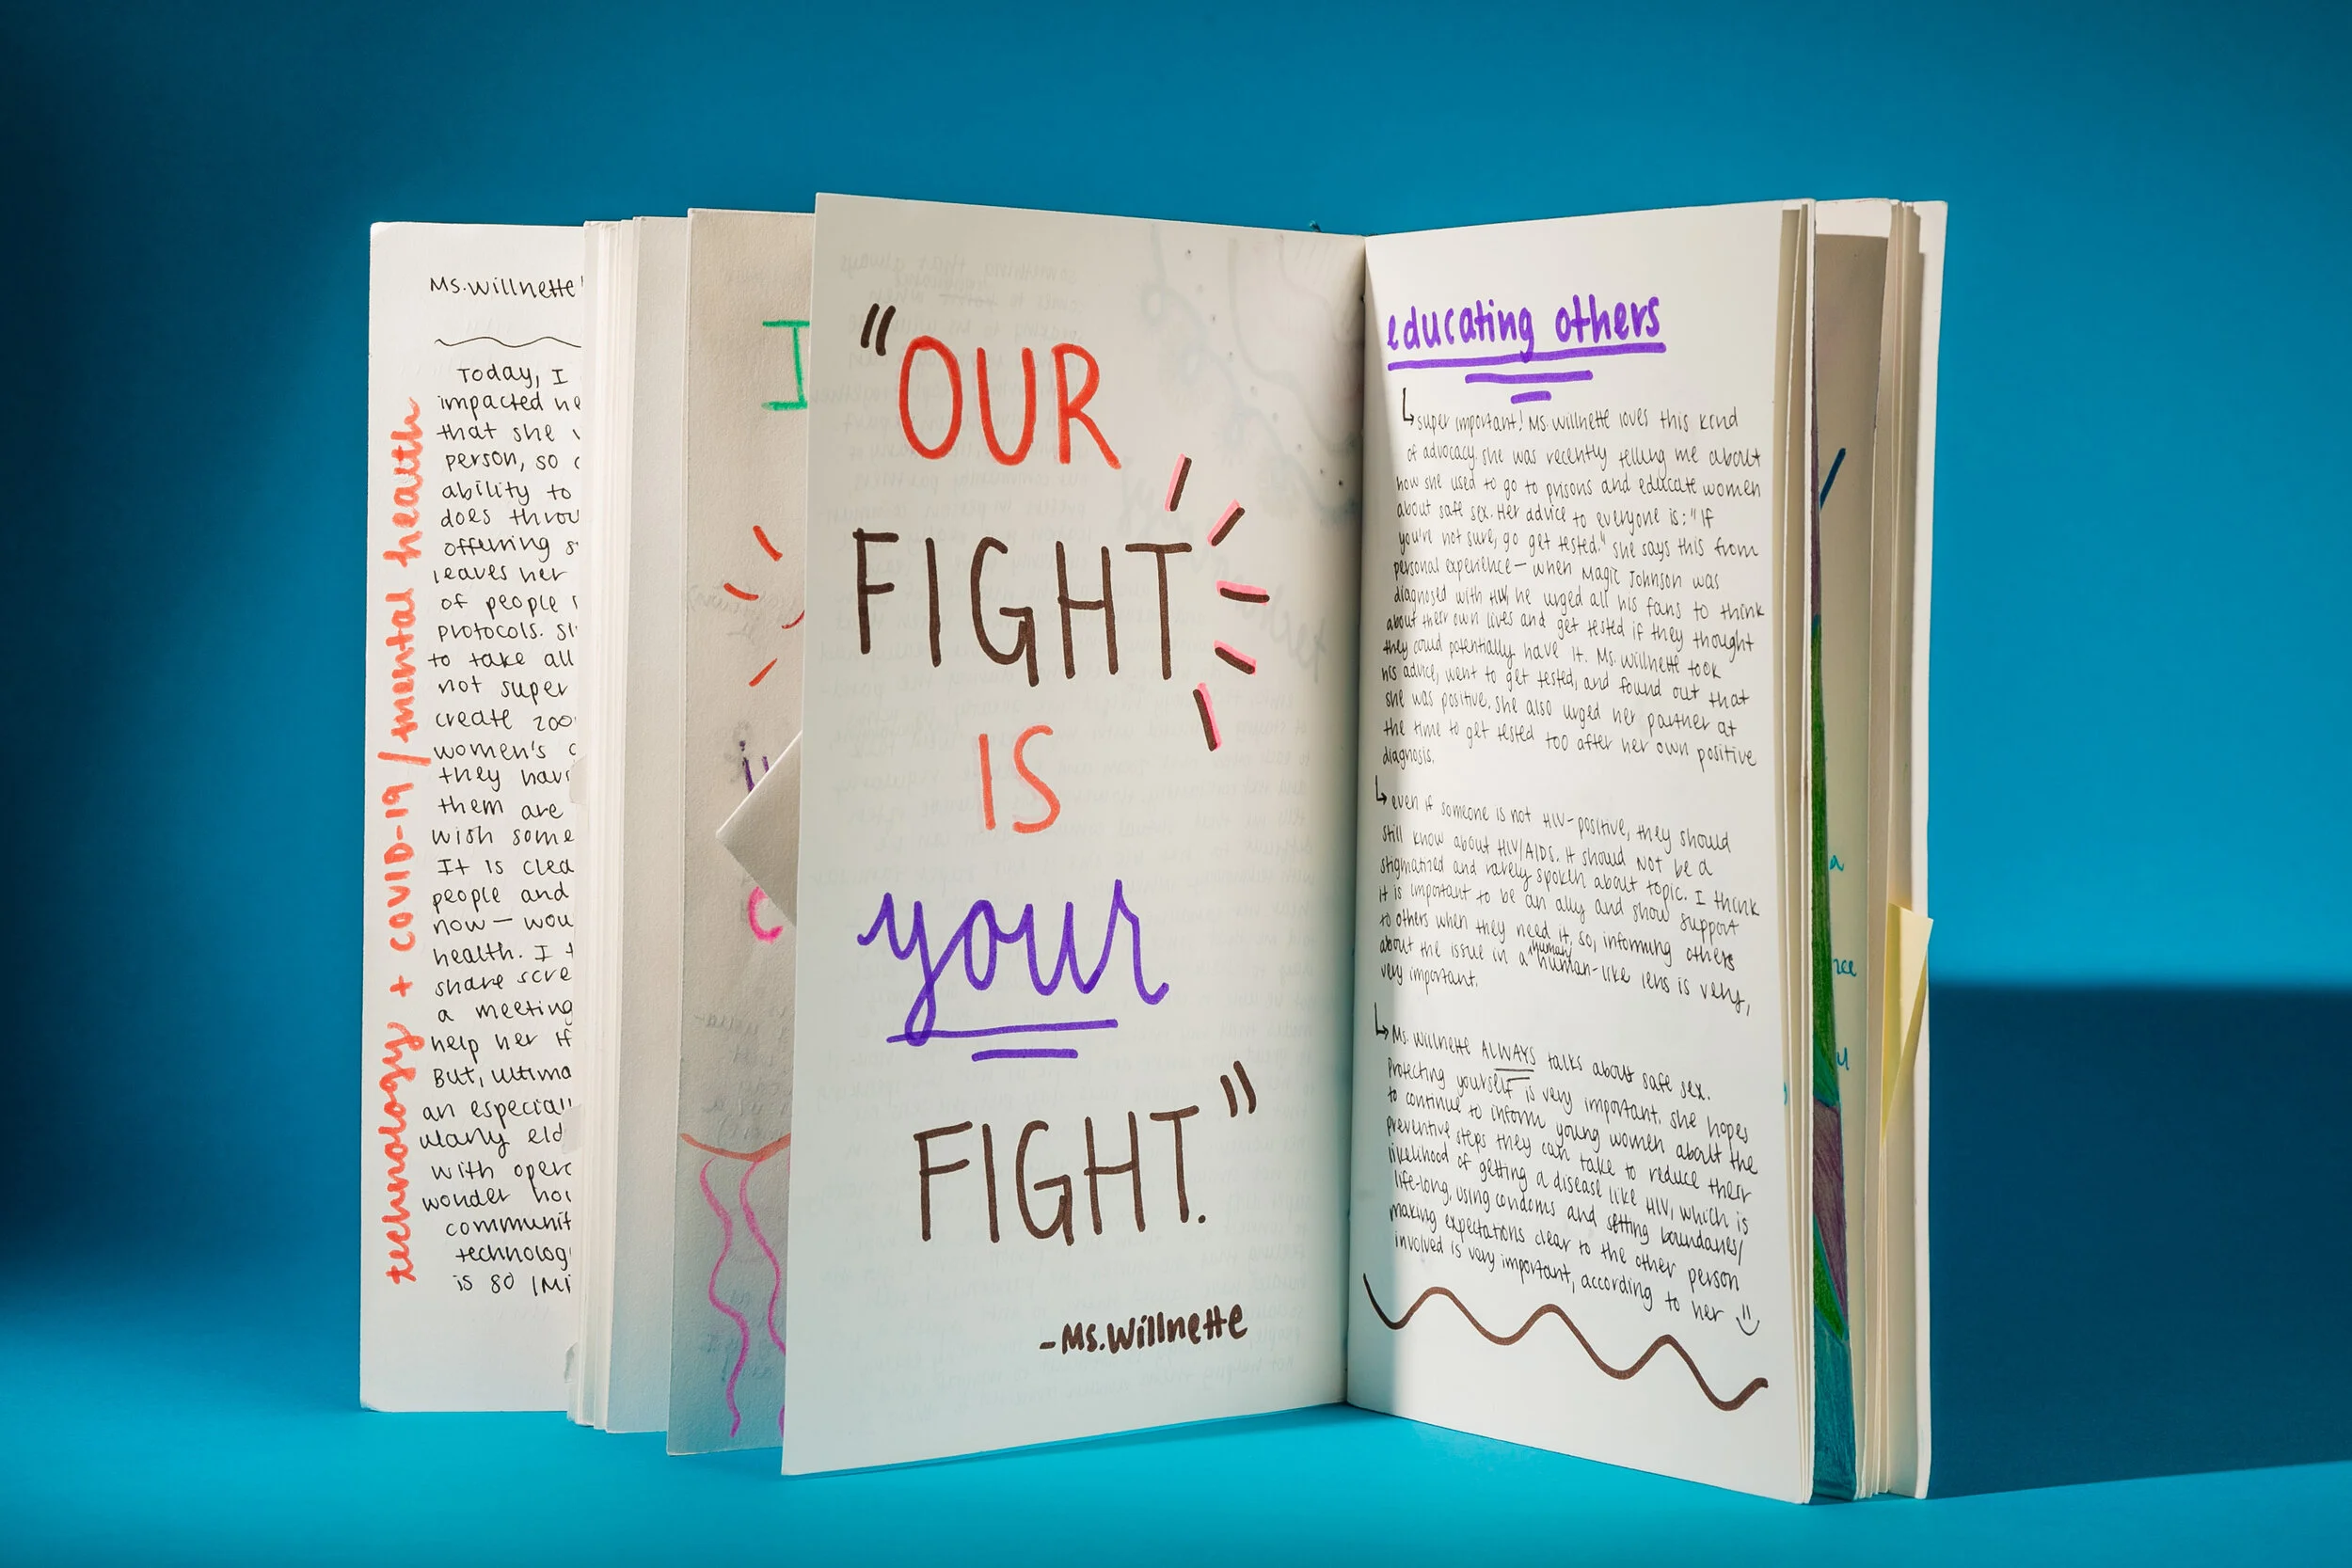 Ms. Willnette'
technology + COVID-19/mental health
Today, I
impacted he
that she
person, so
ability to
does throu
offering s
leaves her
of people
protocols. Sh
to take all
not super
create zoo
women's
they hav
them are
wish some
It is clea
people and
now — wou
health. I
share scre
a meeting
help her if
But, ultima
an especial
many eld
with opera
wonder how
communit
technolog
is 80 (Mi
I
"OUR
FIGHT
IS
your
FIGHT."
-Ms. Willnette
educating others
super important! Ms. Willnette loves this kind
of advocacy. she was recently telling me about
how she used to go to prisons and educate women
about safe sex. Her advice to everyone is: "If
you're not sure, go get tested." she says this from
personal experience — when Magic Johnson was
diagnosed with HIV, he urged all his fans to think
about their own lives and get tested if they thought
they could potentially have it. Ms. Willnette took
his advice, went to get tested, and found out that
she was positive. she also urged her partner at
the time to get tested too after her own positive
diagnosis.
even if someone is not HIV-positive, they should
still know about HIV/AIDS. It should NOT be a
stigmatized and rarely spoken about topic. I think
it is important to be an ally and show support
to others when they need it, so, informing others
about the issue in a human-like lens is very,
very important.
Ms. Willnette ALWAYS talks about safe sex.
Protecting yourself is very important. she hopes
to continue to inform young women about the
preventive steps they can take to reduce their
likelihood of getting a disease like HIV, which is
life-long. using condoms and setting boundaries/
making expectations clear to the other person
involved is very important, according to her